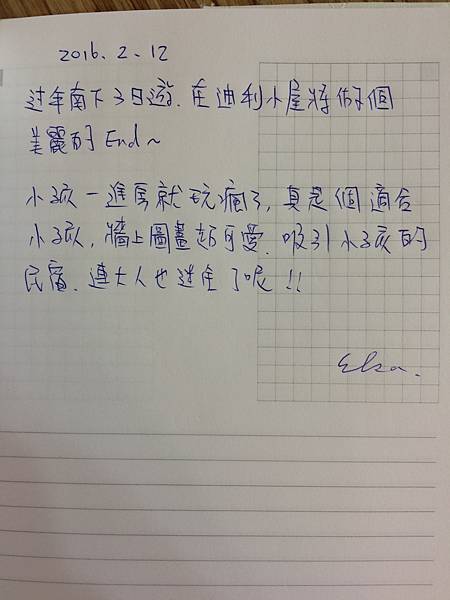 2016.2.12
过年南下3日遊.在迪利小屋將做個
美麗的End~
小孩一進房就玩瘋了,真是個適合
小孩,牆上圖畫超可愛.吸引小孩的
民宿.連大人也迷住了呢!!
Elsa.